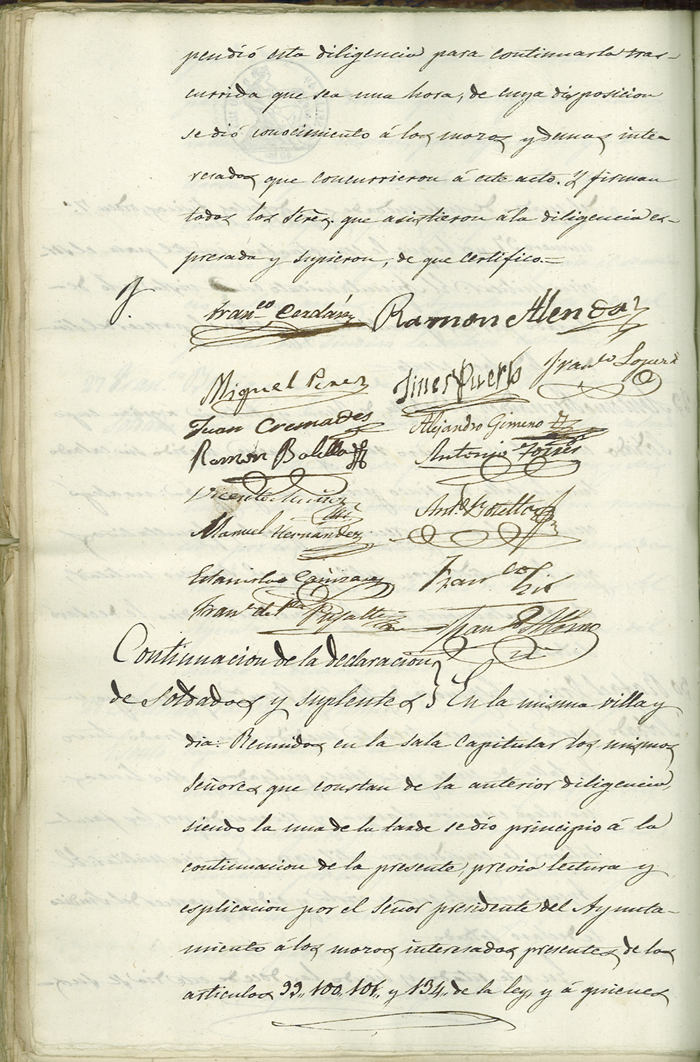 pendió esta diligencia para continuarla tras-
currida que sea una hora, de cuya disposicion
se dió conocimiento á los mozos y demas inte-
resados que concurrieron á este acto. Y firman
todos los Sres. que asistieron á la diligencia es-
presada y supieron, de que certifico.=
Fran.co Cerdán Ramon Alenda
Miguel Perez Jines Puerto Fran.co
Juan Cremades Alejandro Gimeno
Ramon Antonio Torres
Vicente
Manuel Hernandez
Estanislao Fran.co
Fran.co de P.la Pujalte
Continuacion de la declaracion
de soldados y suplentes } En la misma villa y
dia: Reunidos en la sala capitular los mismos
Señores que constan de la anterior diligencia,
siendo la una de la tarde se dio principio á la
continuacion de la presente, previa lectura y
esplicacion por el Señor presidente del Ayunta-
miento á los mozos interesados presentes, de los
articulos 99,, 100,, 101,, y 134,, de la ley, y á quienes